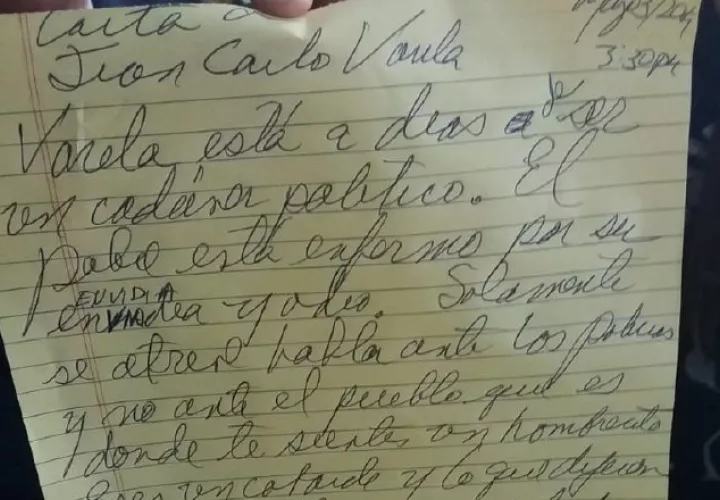 Carta a
Juan Carlo Varela 3:30 PM
Varela está a dias de ser
un cadáver politico. El
pobre está enfermo por su
ENVIDIA
envidia y odio. Solamente
se atreve habla ante los
y no ante el pueblo que es
donde te sientes un hombrecito
Eres un cobarde y lo que